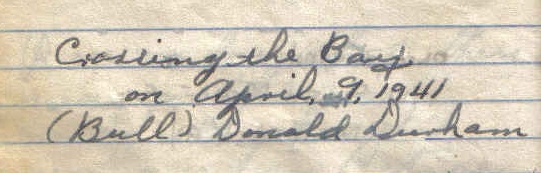 Crossing the Bay
on April, 9, 1941
(Bull) Donald Durham